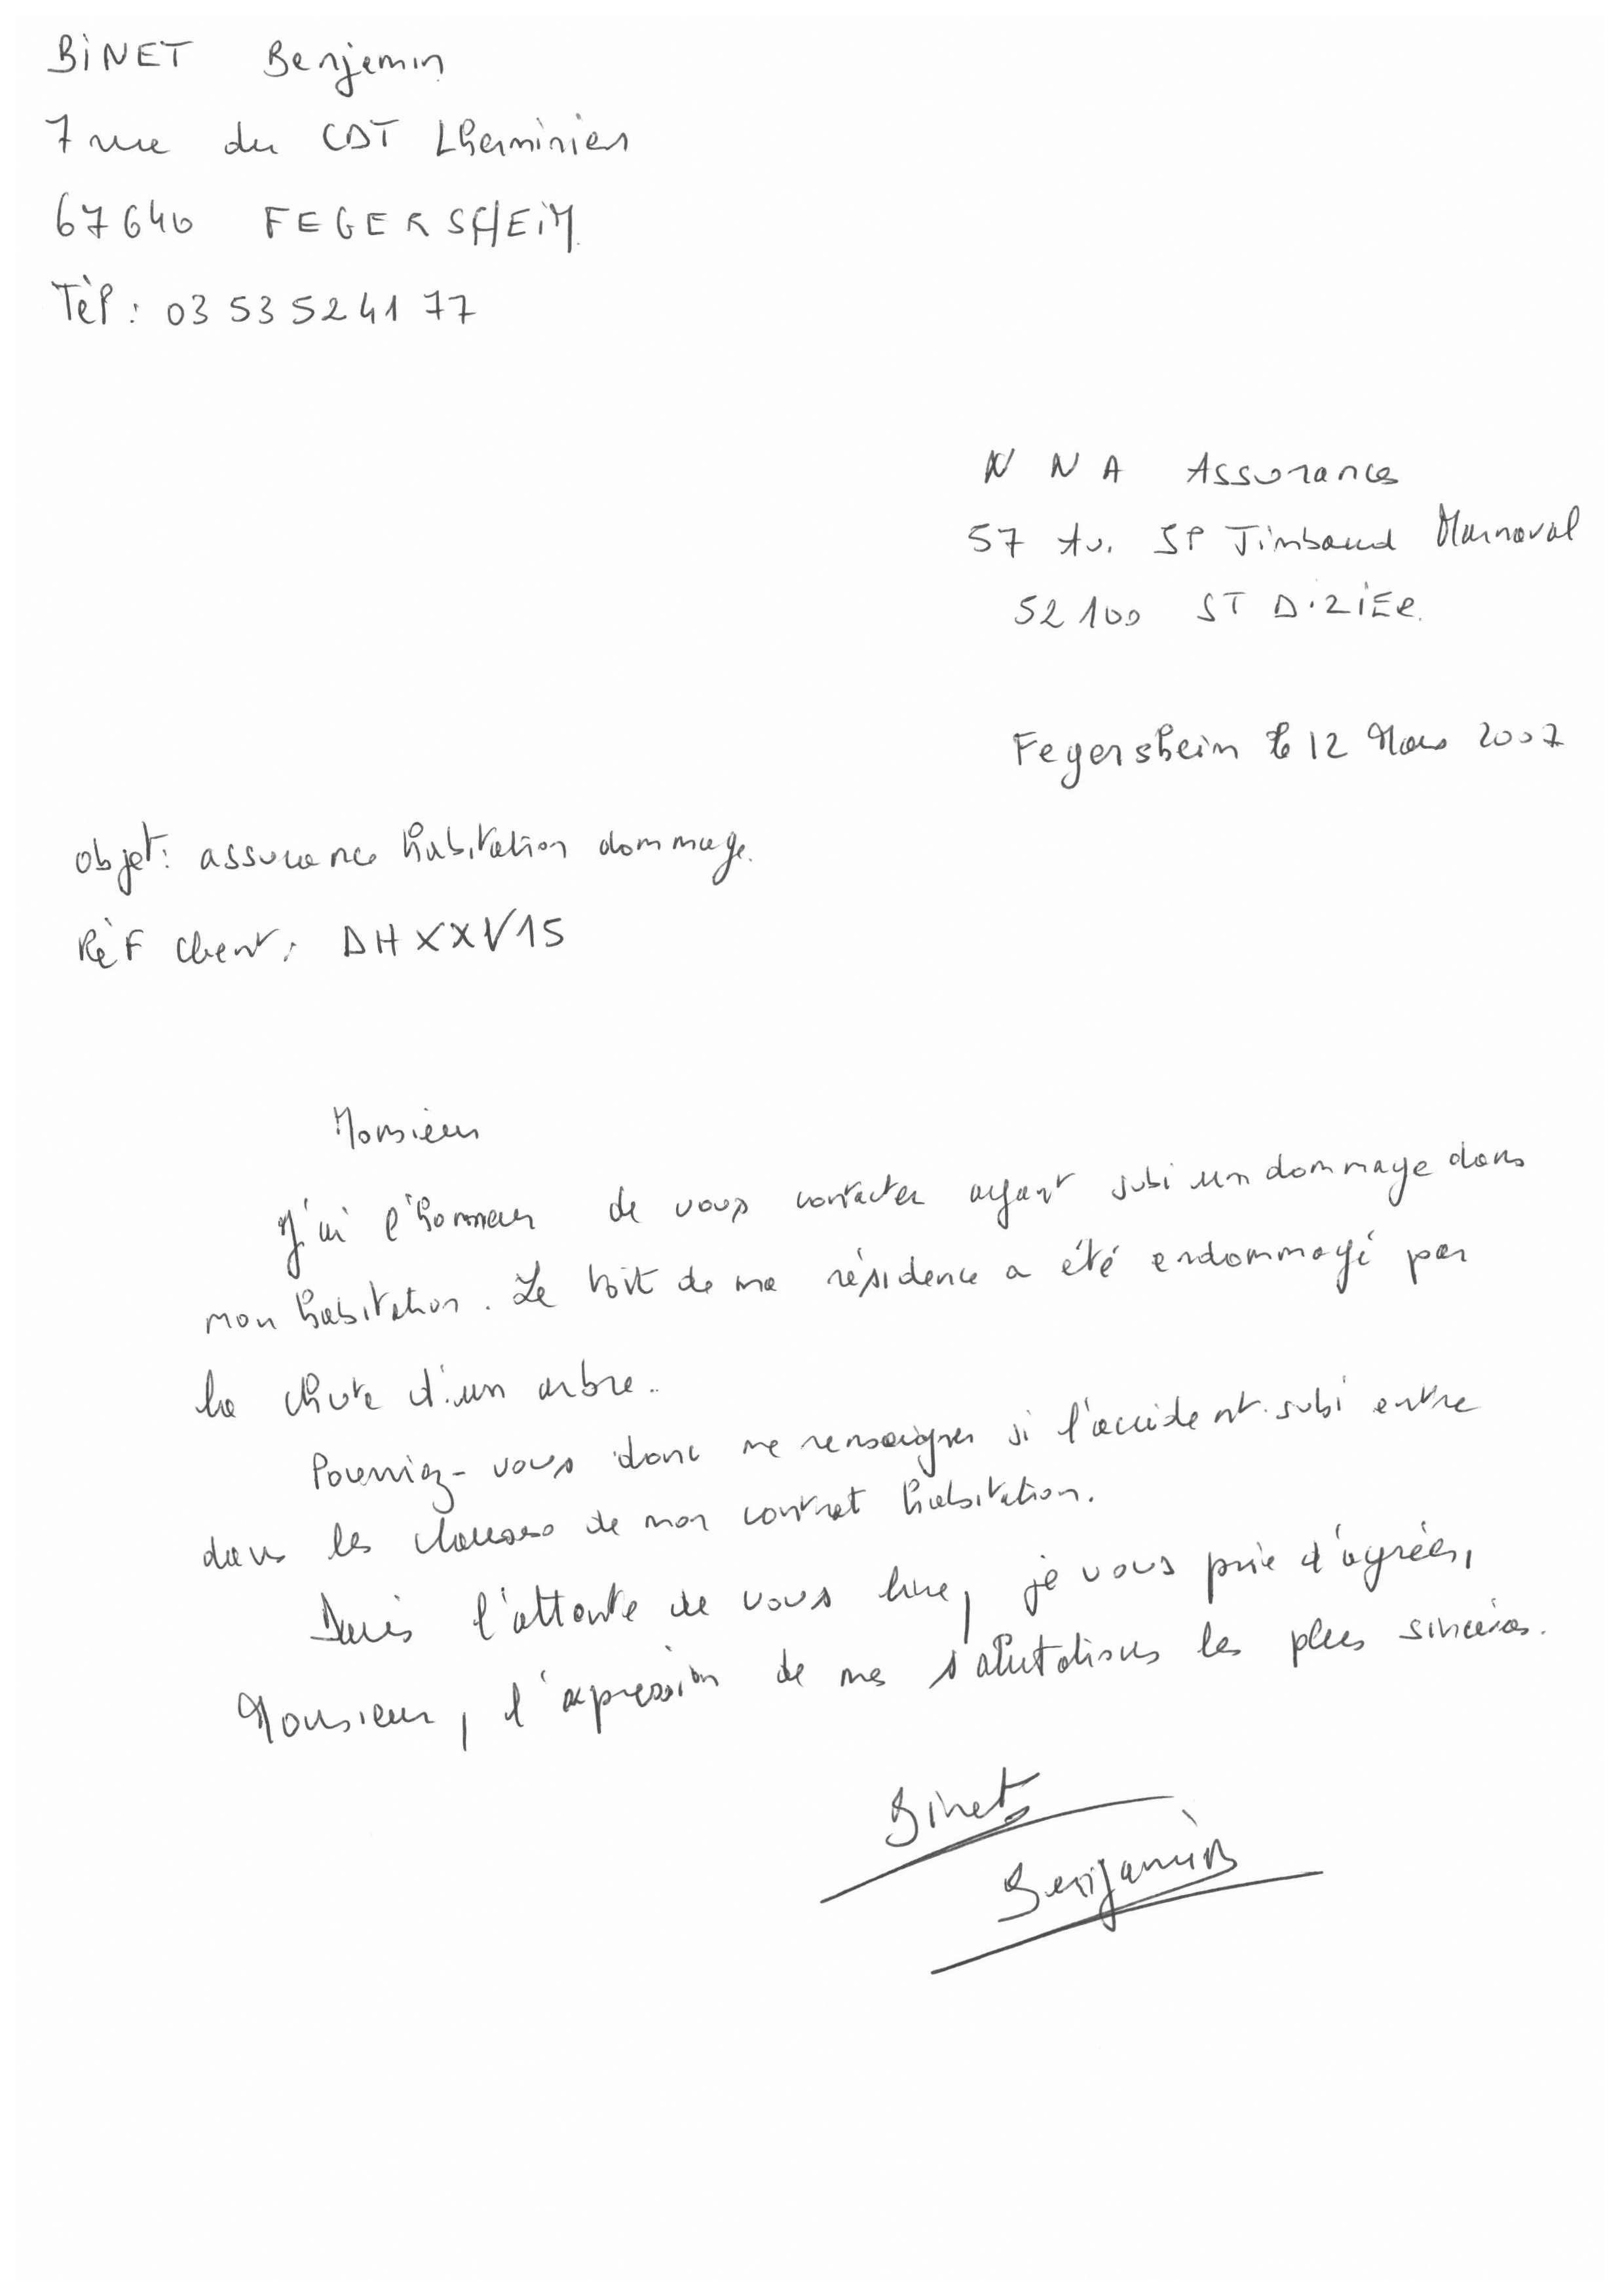 BINET Benjamin
7 rue du CDT Lherminier
67640 FEGERSHEIM
Tèl : 03 53 52 41 77
N N A Assurance
57 Av. JP Timbaud Marnaval
52100 ST DIZIER
Fegersheim le 12 Mars 2007
objet : assurance habitation dommage.
Rèf Client : DHXXV15
Monsieur
J'ai l'honneur de vous contacter ayant subi un dommage dans
mon habitation. Le toit de ma résidence a été endommagé par
la chute d'un arbre.
Pourriez-vous donc me renseigner si l'accident subi entre
dans les clauses de mon contrat habitation.
Dans l'attente de vous lire, je vous prie d'agréer,
Monsieur, l'expression de mes salutations les plus sincères.
Binet
Benjamin